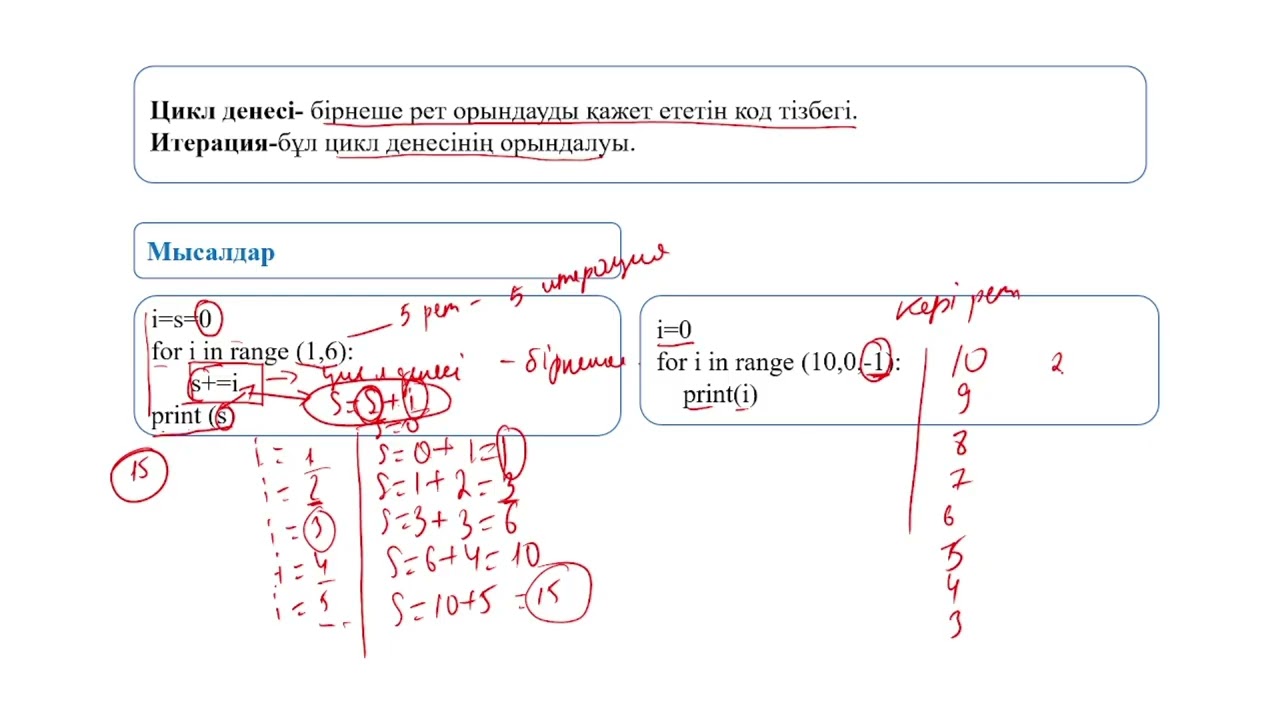 Цикл денесі- бірнеше рет орындауды қажет ететін код тізбегі.
Итерация-бұл цикл денесінің орындалуы.
Мысалдар
i=s=0
for i in range (1,6):
s+=i
print (s)
5 рет - 5 итерация
цикл денесі - бірнеше
S=S+i
15
S=0
i=1 S=0+1=1
i=2 S=1+2=3
i=3 S=3+3=6
i=4 S=6+4=10
i=5 S=10+5=15
i=0
for i in range (10,0,-1):
print(i)
кері рет
10 2
9
8
7
6
5
4
3